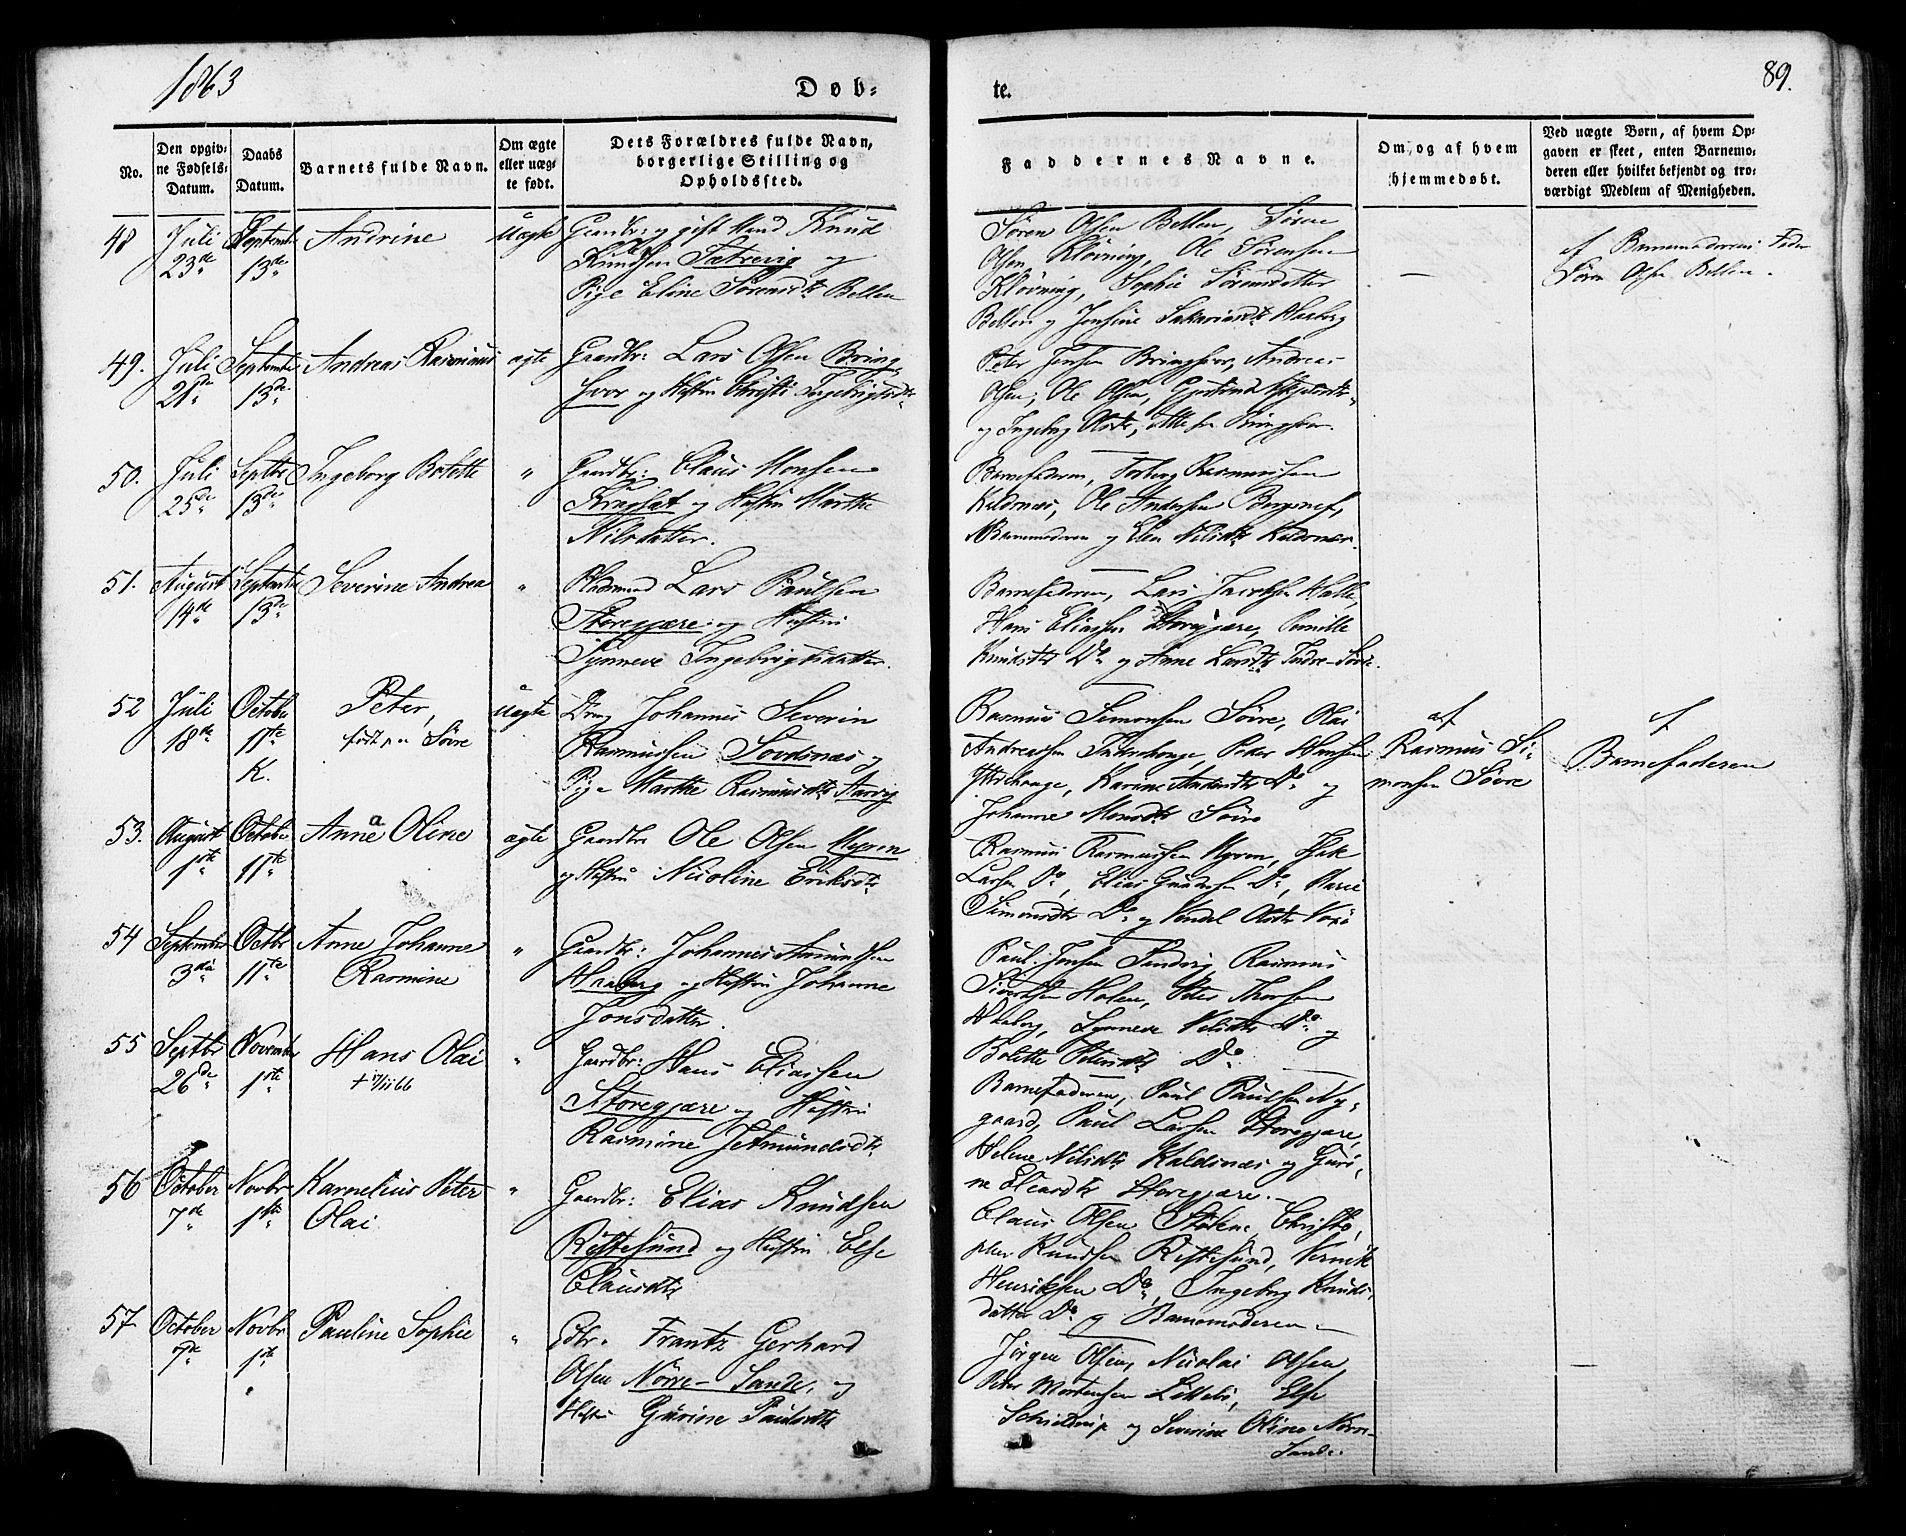 1863
Døb-
te.
89.
No.
Den opgiv-
ne Fødsels-
Datum.
Daabs
Datum.
Barnets fulde Navn.
Om ægte
eller uæg-
te født.
Dets Forældres fulde Navn,
borgerlige Stilling og
Opholdssted.
Faddernes Navne.
Om, og af hvem
hjemmedøbt.
Ved uægte Børn, af hvem Op-
gaven er skeet, enten Barnemo-
deren eller hvilket bekjendt og tro-
værdigt Medlem af Menigheden.
48
Juli
23de
September
13de
Andrine
Uægte
Gaardbr: og gift Mand Knud
Knudsen Sætrevig og
Pige Eline Sørensdtr Bellen
Søren Olsen Bellen, Søren
Olsen Kløvning, Ole Sørensen
Kløvning, Sophie Sørensdatter
Bellen og Jensine Sakariasdtr Haaberg
—
af Barnemoderens Fader
Søren Olsen Bellen.
49.
Juli
21de
September
13de
Andreas Rasmus
ægte
Gaardbr: Lars Olsen Bring-
svor og Hustru Christi Ingebrigtsdtr
Peter Jensen Bringsvor, Andreas
Olsen, Ole Olsen,
og Ingeborg Olsdtr, Alle fra Bringsvor.
50.
Juli
25de
Septbr
13de
Ingeborg Bolette
"
Gaardbr: Claus Monsen
og Hustru Marthe
Nilsdatter.
Barnefaderen, Rasmussen
Kaldnæs, Ole Andersen
Barnemoderen og Elen Nilsdtr Kaldnæs.
51.
August
14de
September
13de
Severine Andrea
"
Huusmand Lars Paulsen
Storegjære og Hustru
Synneve Ingebrigtsdatter.
Barnefaderen, Lars Jacobsen
Hans Eliassen Storegjære, Pernille
Knudsdtr Do og Anne Larsdtr Indre-Søvre.
52
Juli
18de
October
11te
K.
Peter,
født paa Søvre
Uægte
Dreng Johannes Severin
Rasmussen Sovdsnæs og
Pige Marthe Rasmusdtr Aarvig
Rasmus Simonsen Søvre, Olai
Andreassen Indrehauge, Peder Hansen
Ytrehauge, Karine Do og
Johanne Monsdtr Søvre
af
Rasmus Si-
monsen Søvre
af
Barnefaderen
53.
August
1ste
October
11te
Anna Oline
ægte
Gaardbr Ole Olsen Myren
og Hustru Nicoline Eriksdtr
Rasmus Rasmussen Myren, Isak
Larsen Do, Elias Do, Marie
Simonsdtr Do og Vendel Olsdtr
54
September
3die
Octbr
11te
Anne Johanne
Rasmine
"
Gaardbr: Johannes Amundsen
Haaberg og Hustru Johanne
Jonsdatter.
Paul Jensen Sandvig, Rasmus
Sivertsen Holen, Peter Thorsen
Haaberg, Synneve Nilsdtr Do og
Bolette Petersdtr Do
55
Septbr
26de
November
1ste
Hans Olai
+ 17/11 66
"
Gaardbr: Hans Eliassen
Storegjære og Hustru
Rasmine Jetmundsdtr
Barnefaderen, Paul Paulsen Ny-
gaard, Paul Larsen Storegjære,
Helene Nilsdtr Kaldsnæs og Guri-
ne Eliasdtr Storegjære.
56
October
7de
Novbr
1ste
Karnelius Peter
Olai
"
Gaardbr: Elias Knudsen
Røstesund og Hustru Else
Clausdtr
Claus Olsen Stølene, Christo-
pher Knudsen Røstesund,
Henriksen Do, Ingeborg Knuds-
datter Do og Barnemoderen
57
October
7de
Novbr
1ste
Pauline Sophie
"
Gdbr. Frantz Gerhard
Olsen Nørre-Sande, og
Hustru Gurine Paulsdtr
Jørgen Olsen, Nicolai Olsen,
Peter Mortensen Else
og Severine Oline Nørre-
Sande.
—